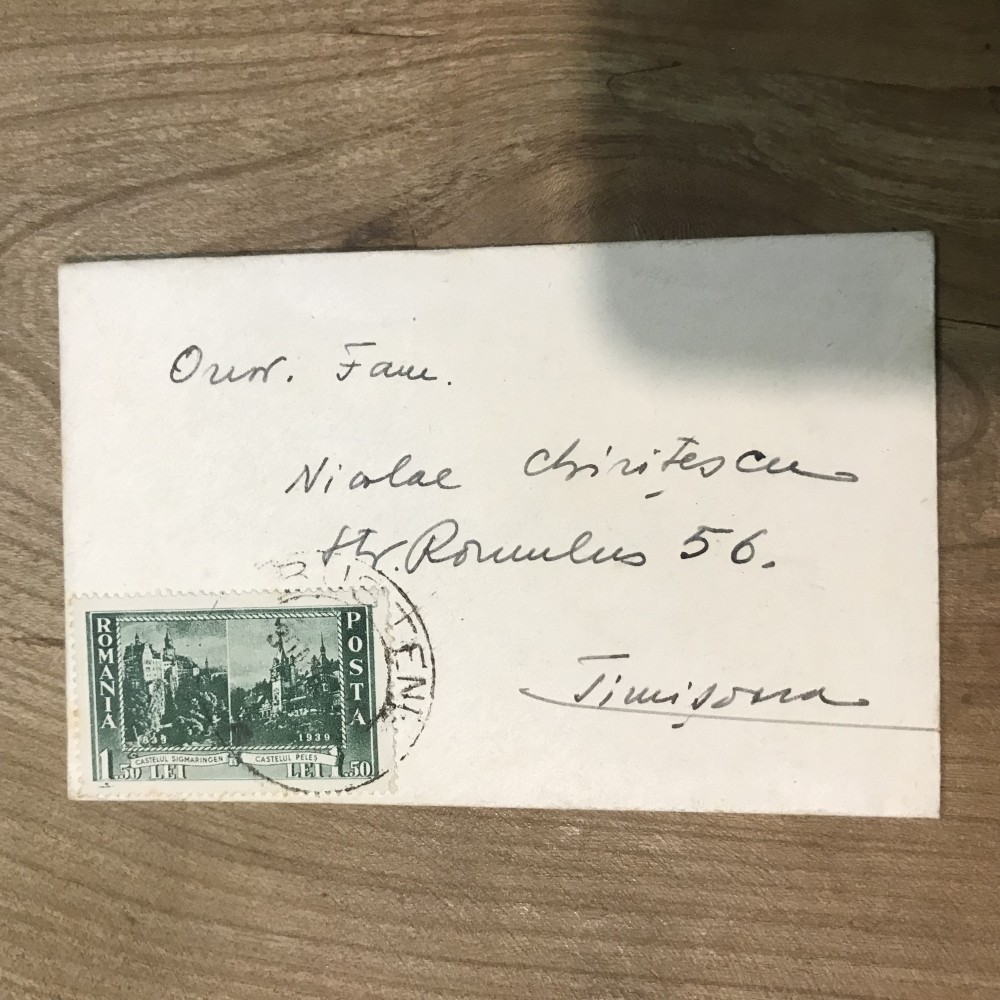 Onor. Fam.
Nicolae Chirițescu
Str. Romulus 56.
Timișoara
ROMANIA
POSTA
1939
CASTELUL SIGMARINGEN
CASTELUL PELEȘ
1.50 LEI
LEI 1.50